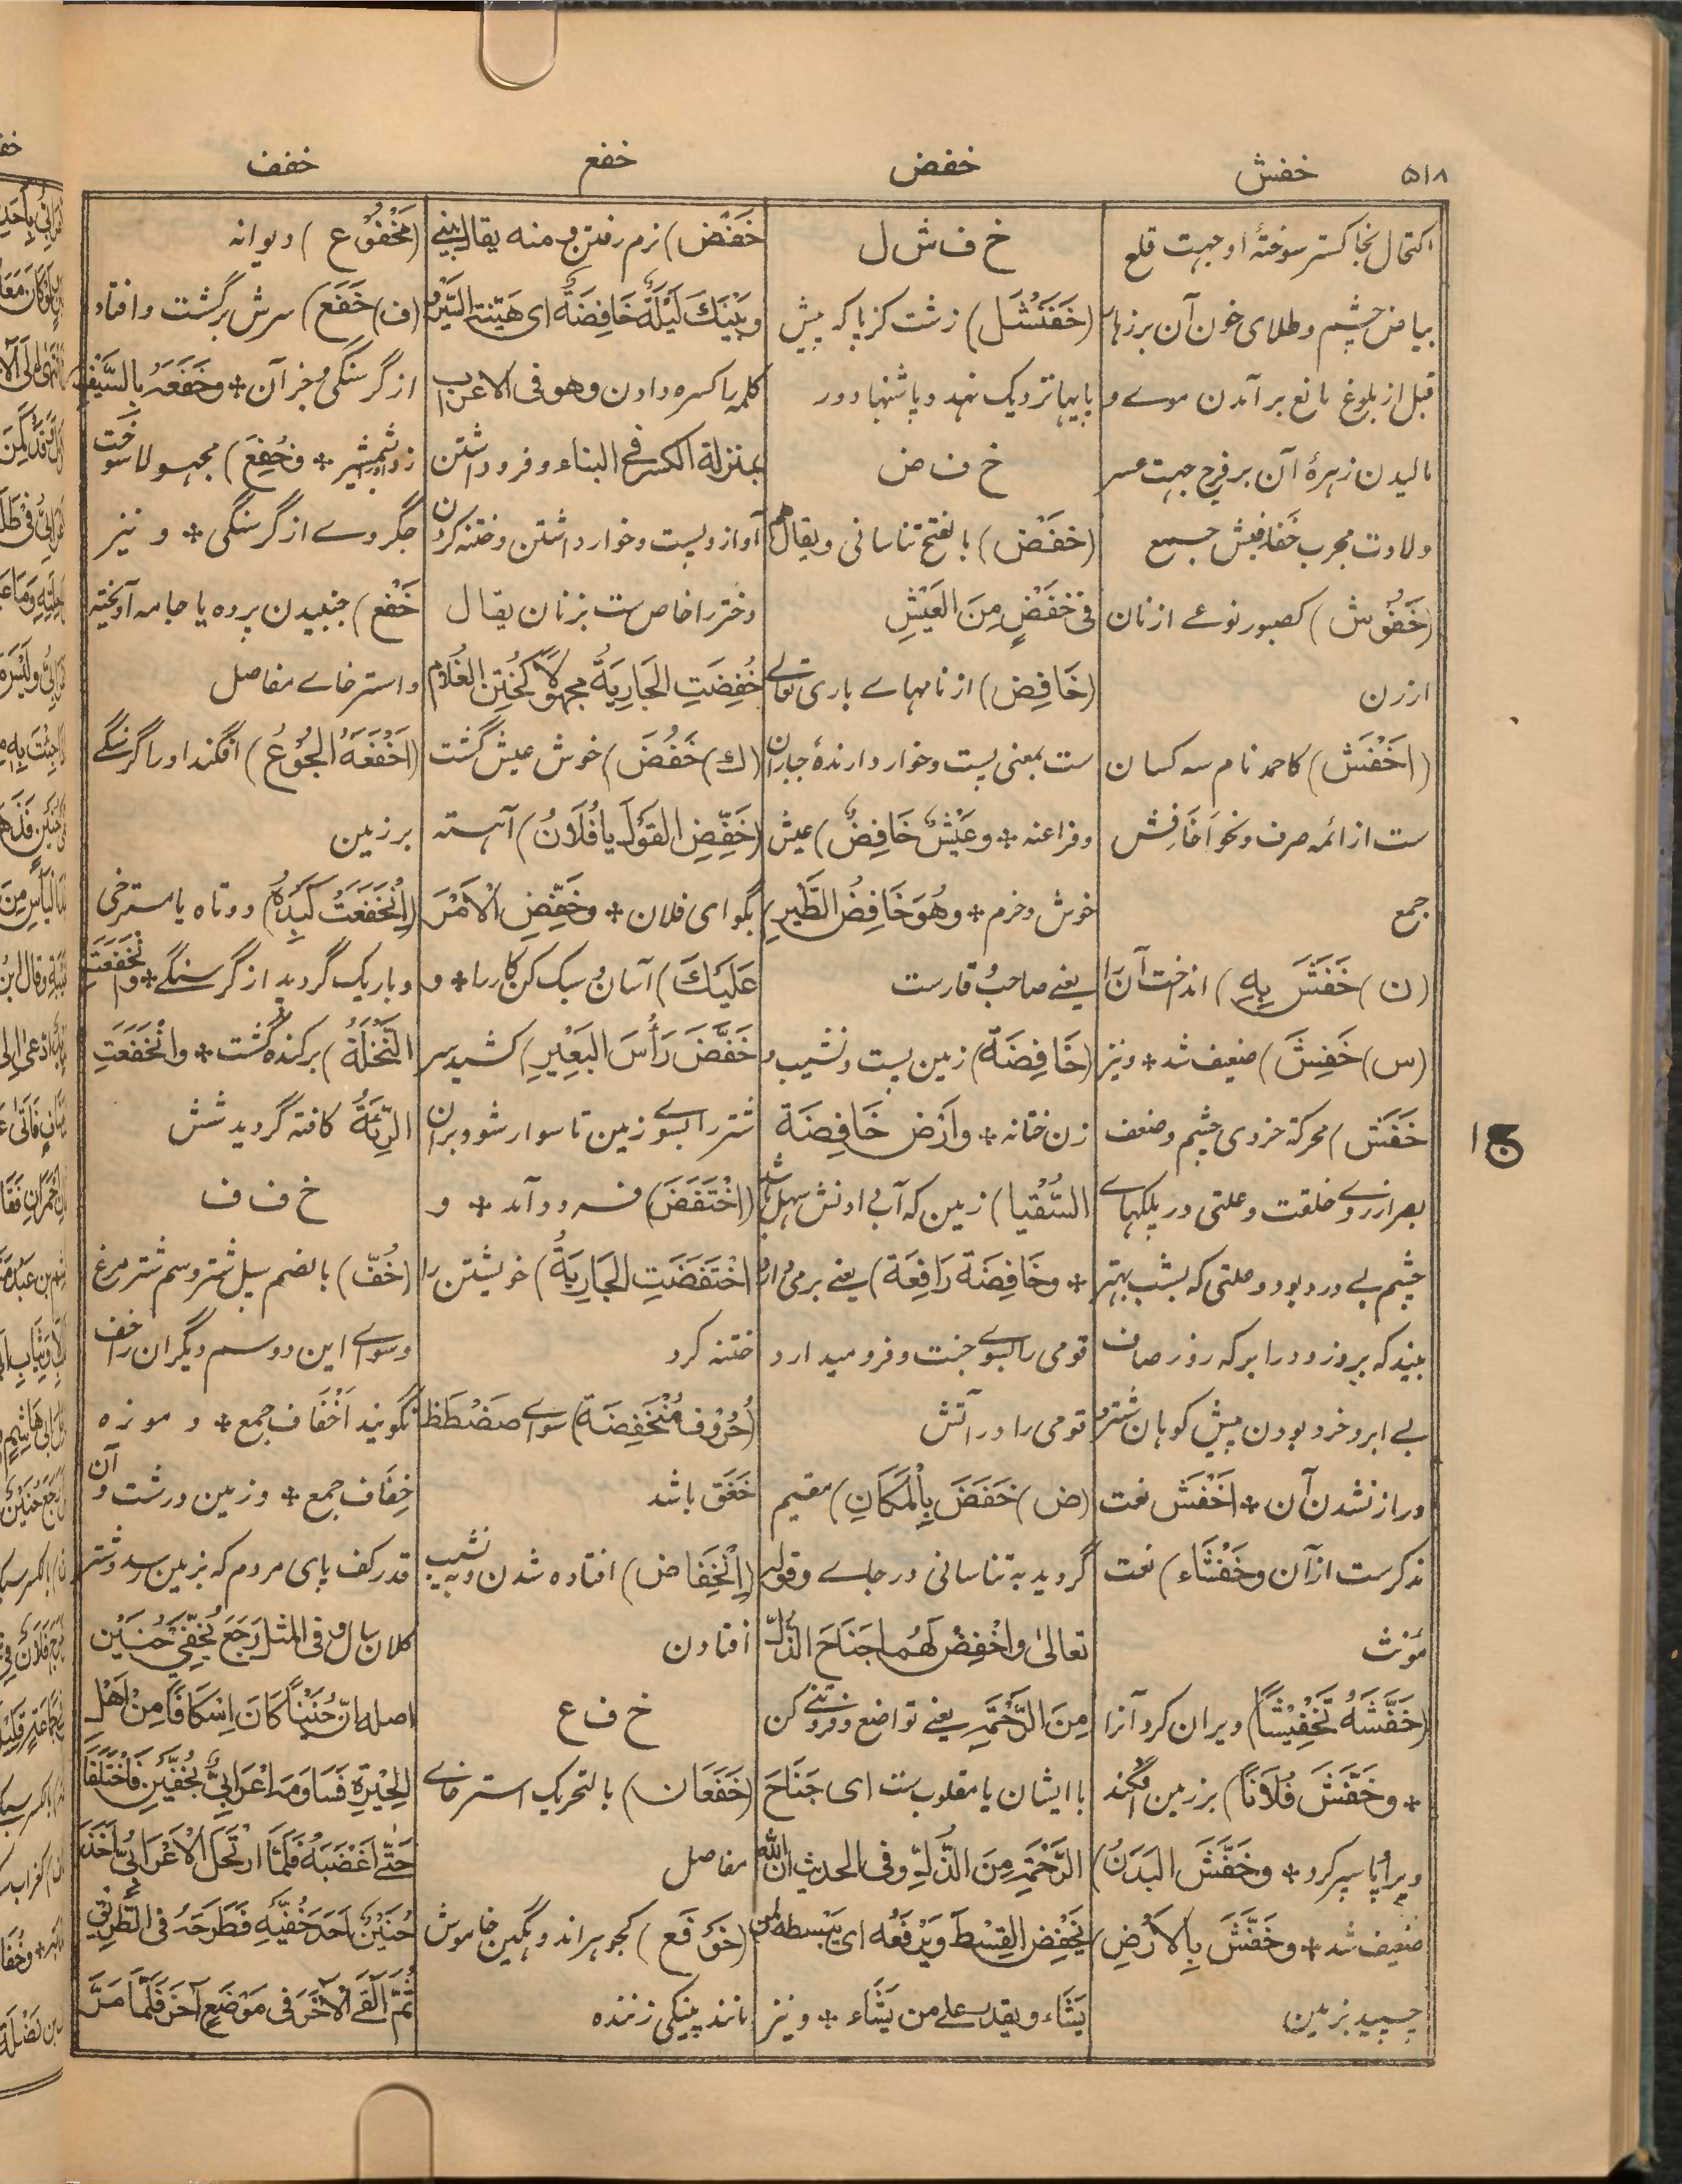 ۵۱۸
خفش
خفض
خفع
خفف
اکتحال بخاکستر سوختهٔ او جهت قلع
بیاض چشم و طلای خون آن بر زهار
قبل از بلوغ مانع بر آمدن موے و
مالیدن زهرهٔ آن بر فرج جهت عسر
ولادت مجرب خَفافِیش جمع
(خَفُوش) کصبور نوعے از نان
ارزن
(اَخْفَش) کاحمد نام سه کسان
ست از ائمه صرف و نحو اَخَافِش
جمع
(ن) خَفَشَ بِهِ) انداخت آن را
(س) خَفِشَ) ضعیف شد * و نیز
خَفَش) محرکة خردی چشم و ضعف
بصر از روے خلقت و علتی در پلکهاے
چشم بے درد بود و علتی که بشب بهتر
بیند که بروز و در ابر که روز صاف
بے ابر و خرد بودن پیش کوهان شتر و
دراز نشدن آن * اَخْفَش نعت
مذکرست ازآن و خَفْشَاء) نعت
مؤنث
(خَفَّشَهُ تَخْفِیْشًا) ویران کرد آنرا
* و خَفَّشَ فُلَانًا) بر زمین افگند
و پراپا سپر کرد * و خَفَّشَ البَدَنُ)
ضعیف شد * و خَفَّشَ بِالْاَرْضِ)
چسپید بزمین
خ ف ش ل
(خَفَنْشَل) زشت کژپا که پیش
پایها نزدیک نهد و پاشنها دور
خ ف ض
(خَفْض) بالفتح تناسانی و یقال هم
فی خَفْضٍ مِنَ العَیْشِ
(خَافِض) از نامهاے باری تعالے
ست بمعنی پست و خوار دارندهٔ جباران
و فراعنه * و عَیْشٌ خَافِضٌ) عیش
خوش و خرم * و هُوَ خَافِضُ الطَّیْرِ)
یعنے صاحب وقارست
(خَافِضَة) زمین پست و نشیب و
زن ختانه * و اَرْض خَافِضَة
السُّقْیا) زمین که آب دادنش سهل باشد
* و خَافِضَة رَافِعَة) یعنے برمی دارد
قومی را بسوے جنت و فرو میدارد
قومی را در آتش
(ض) خَفَضَ بِالْمَکَانِ) مقیم
گردید به تناسانی در جاے و قوله
تعالیٰ وَاخْفِضْ لَهُمَا جَنَاحَ الذُّلِّ
مِنَ الرَّحْمَةِ یعنے تواضع و فروتنے کن
با ایشان یا مقلوب ست ای جَنَاحَ
الرَّحْمَةِ مِنَ الذُّلِّ و فی الحدیث اِنَّ اللّٰه
یَخْفِضُ القِسْطَ وَیَرْفَعُه ای یَبْسطه لمن
یَشَاء و یقدر علے من یشَاء * و نیز
خَفْض) نرم رفتن و منه یقال بینے
و بَیْنَکَ لَیْلَةٌ خَافِضَةٌ ای هَیّنة السَّیر و
کلمه را کسره دادن وهو فی الاعراب
بمنزلة الکسر فی البناء و فرود داشتن
آواز و پست و خوار داشتن و ختنه کردن
دختر را خاص ست بزنان یقال
خُفِضَتِ الجَارِیَةُ مجهولًا کَخُتِنَ الغُلَامُ
(ک) خَفُضَ) خوش عیش گشت
(خَفِّضِ القَوْلَ یا فُلَانُ) آهسته
بگو ای فلان * و خَفِّضِ الْاَمْرَ
عَلَیْکَ) آسان و سبک کن کار را * و
خَفَّضَ رَأْسَ البَعِیْرِ) کشید سر
شتر را بسوے زمین تا سوار شود بران
(اِخْتَفَضَ) فرود آمد * و
اخْتَفَضَتِ الجَارِیَةُ) خویشتن را
ختنه کرد
(حُرُوف مُنْخَفِضَة) سواے صَضْطَظ
خَغَق باشد
(اِنْخِفَاض) افتاده شدن و به نشیب
افتادن
خ ف ع
(خَفَعَان) بالتحریک استرخاے
مفاصل
(خَوْفَع) کجوهر اندوهگین خاموش
مانند پینکی زننده
(مَخْفُوْع) دیوانه
(ف) خَفَعَ) سرش برگشت و افتاد
از گرسنگی و جز آن * و خَفَعَهُ بِالسَّیْفِ)
زد او را بشمشیر * و خُفِعَ) مجهولا سوخت
جگر وے از گرسنگی * و نیز
خَفْع) جنبیدن پرده یا جامه آویخته
و استرخاے مفاصل
(اَخْفَعَهُ الجُوْعُ) افگند او را گرسنگے
بر زمین
(اِنْخَفَعَتْ کَبِدُهُ) دوتاه یا مسترخی
و باریک گردید از گرسنگے * و انْخَفَعَتِ
النَّخْلَةُ) برکنده گشت * و انْخَفَعَتِ
الرِّئَةُ) کافته گردید شش
خ ف ف
(خُفّ) بالضم سپل شتر و سم شتر مرغ
و سواے این دو سم دیگران را خف
نگویند اَخْفَاف جمع * و موزه
خِفَاف جمع * و زمین درشت و آن
قدر کف پای مردم که بزمین رسد و شتر
کلان سال و فی المثل رَجَعَ بِخُفَّیْ حُنَیْن
اصله اَنَّ حُنَیْنًا کَانَ اِسْکَافًا مِنْ اَهْلِ
الحِیْرَةِ فَسَاوَمَه اَعْرَابِیٌّ بِخُفَّیْنِ فَاخْتَلَفَا
حَتّٰے اَغْضَبَهُ فَلَمَّا ارْتَحَلَ الْاَعْرَابِیُّ اَخَذَ
حُنَیْنٌ اَحَدَ خُفَّیْهِ فَطَرَحَهُ فی الطَّرِیْقِ
ثُمَّ اَلْقَے الْآخَرَ فِی مَوْضَعٍ آخَرَ فَلَمَّا مَرَّ